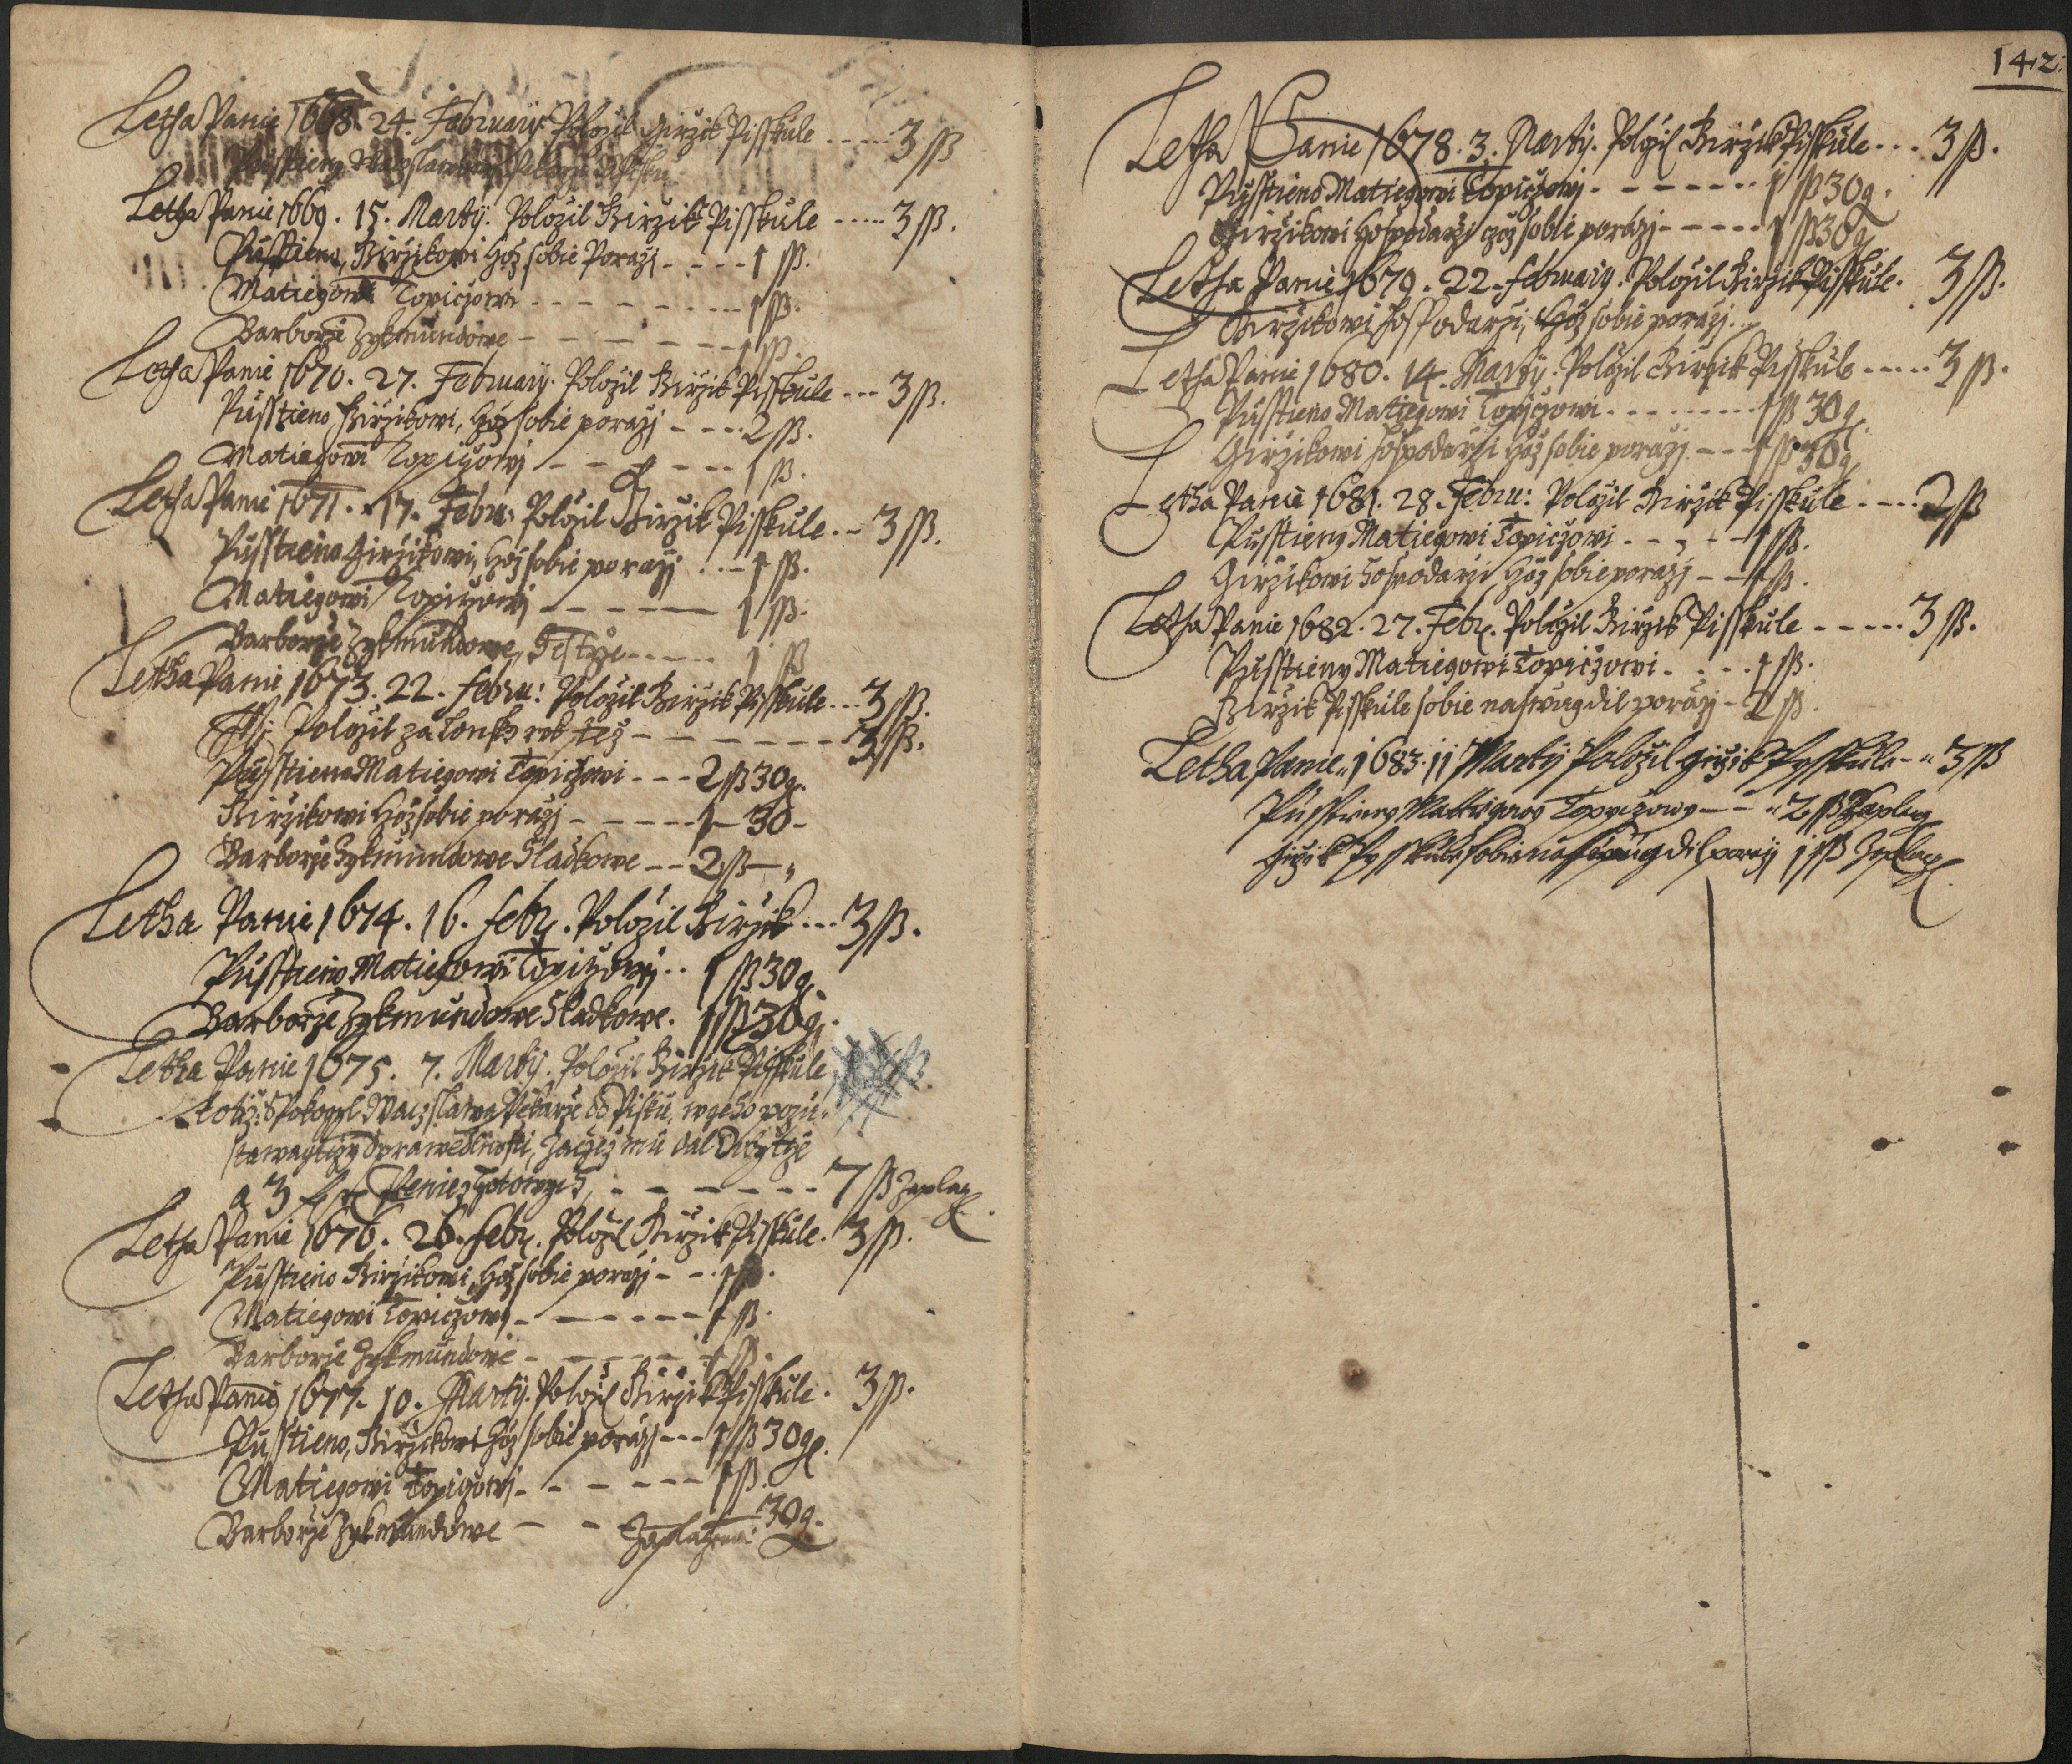 Letha Panie 1668. 24. February. Polozil Girzik Pisskule ..... 3 ß
Pusstieny
Letha Panie 1669. 15. Marty. Polozil Girzik Pisskule ..... 3 ß.
Pusstieno, Girzikowi, Hož sobie Porazy ---- 1 ß.
Matiegowi Topiczowi -------- 1 ß.
Barborze Zykmundowe ------- 1 ß.
Letha Panie 1670. 27. February. Polozil Girzik Pisskule --- 3 ß.
Pusstieno Girzikowi, Hož sobie porazy ---- 2 ß.
Matiegowi Topiczowi ------- 1 ß.
Letha Panie 1671. 17. Febru: Polozil Girzik Pisskule. - 3 ß.
Pusstieno Girzikowi, Hož sobie porazy ...- 1 ß.
Matiegowi Topiczowi ------ 1 ß.
Barborze Zykmundowe, ------ 1 ß
Letha Panie 1673. 22. Febru: Polozil Girzik Pisskule --- 3 ß.
Polozil za tonho rok tez -------- 3 ß.
Pusstieno Matiegowi Topiczowi --- 2 ß 30 g.
Girzikowi Hož sobie porazy ----- 1 - 30 -
Barborze Zykmundowe Sladkowe -- 2 ß - "
Letha Panie 1674. 16. Feb. Polozil Girzik --- 3 ß.
Pusstieno Matiegowi Topiczowi .. 1 ß 30 g
Barborze Zykmundowe Sladkowe. 1 ß 30 g.
Letha Panie 1675. 7. Marty. Polozil Girzik Pisskule
totiz: Spokogyl Waczslawa Pekarze od Pisku, w geho pozu-
stawagiczy Sprawedlnosti, zacziz mu dal Dobytcze
a 3 Peniez Hotowych, ------ 7 ß Zaplac
Letha Panie 1676. 26. Feb. Polozil Girzik Pisskule. 3 ß.
Pusstieno Girzikowi, Hož sobie porazy - - . 1 ß.
Matiegowi Topiczowi ------- 1 ß.
Barborze Zykmundowe ------ 1 ß.
Letha Panie 1677. 10. Marty. Polozil Girzik Pisskule. 3 ß.
Pusstieno, Girzikowi Hož sobie porazy --- 1 ß 30 g.
Matiegowi Topiczowi ------- 1 ß.
Barborze Zykmundowe -- - Zaplaczeno. 30 g.
142.
Letha Panie 1678. 3. Marty. Polozil Girzik Pisskule --- 3 ß.
Pusstieno Matiegowi Topiczowi ------- 1 ß 30 g.
Girzikowi Hospodarzi czož sobie porazy ----- 1 ß 30 g
Letha Panie 1679. 22. February. Polozil Girzik Pisskule. 3 ß.
Girzikowi Hospodarzi, Hož sobie porazy ...
Letha Panie 1680. 14. Marty. Polozil Girzik Pisskule ..... 3 ß.
Pusstieno Matiegowi Topiczowi --------- 1 ß 30 g
Girzikowi Hospodarzi Hož sobie porazy --- 1 ß 30 g
Letha Panie 1681. 28. Febru: Polozil Girzik Pisskule ---- 2 ß
Pusstieny Matiegowi Topiczowi ------ 1 ß.
Girzikowi Hospodarzi Hož sobie porazy -- 1 ß.
Letha Panie 1682. 27. Feb. Polozil Girzik Pisskule ----- 3 ß.
Pusstieny Matiegowi Topiczowi ---- 1 ß.
Girzik Pisskule sobie na swug dil porazy - 2 ß.
Letha Panie 1683. 11 Marty Polozil Girzik Pysskule - " 3 ß
Pusstieny Mattiegowy Topyczowy -- " 2 ß Zaplac
Girzik Pysskule sobie na swug dil porazy 1 ß Zaplac